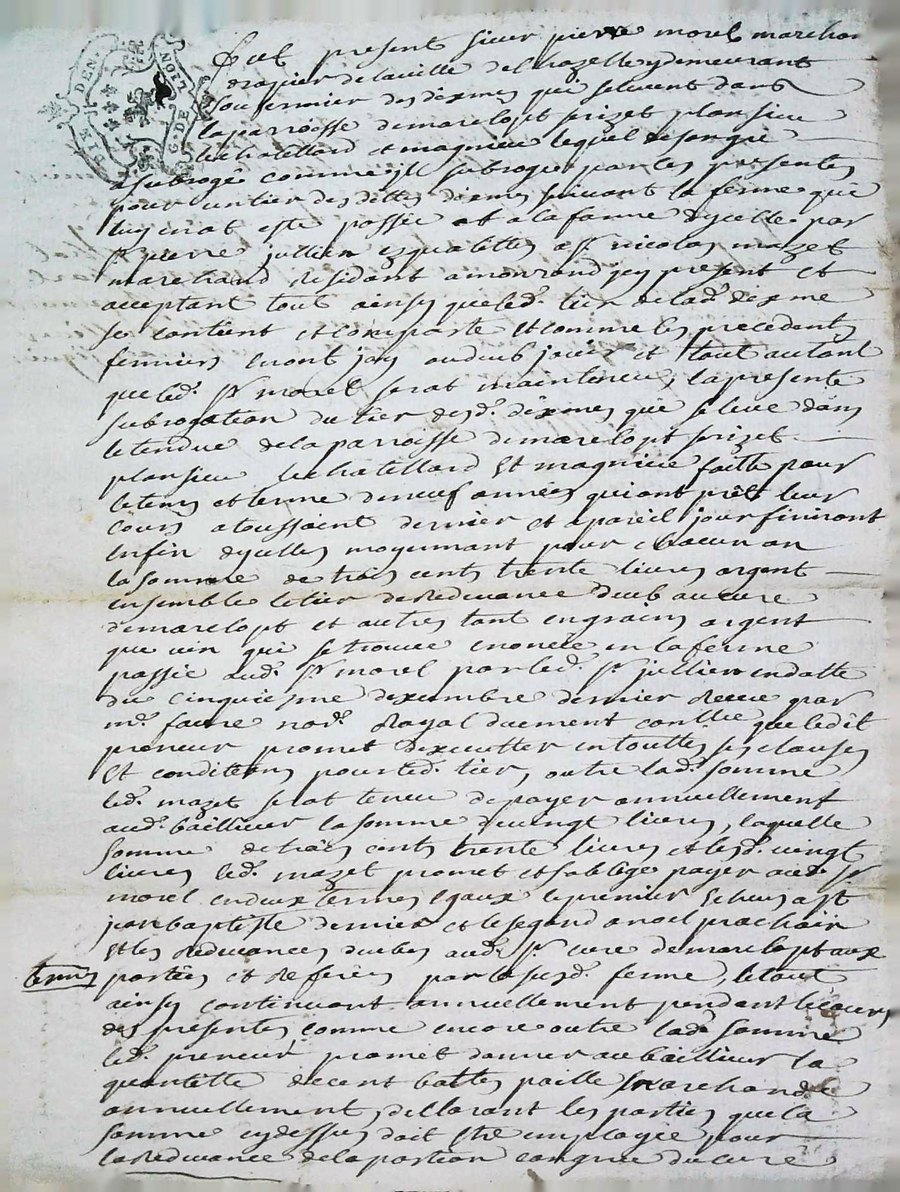 GEN DEN DE NOIT
fut present sieur pierre morel marchan
drapier de la ville de chazelle y demeurant
sou fermier des dixmes qui se leuent dans
la parroisse de marclopt prizet plansieu
le chatellard et magnieu lequel de son gré
a subrogé comme jl subroge par les presentes
pour un tier des dittes dixmes suivant la ferme que
luy en at esté passée et a la forme dycelle par
sr pierre jullien ez qualittes a sr nicolas mazet
marchand residant a monrond jcy present et
acceptant tout ainsy que led. tier de lad. dixme
se contient et comporte et comme les precedents
fermiers en ont jouy ou dub jouir et tout autant
que led. sr morel serat maintenu, la presente
subrogation du tier desd. dixmes que se leue dans
letendue de la parroisse de marclopt prizet
plansieu le chatellard et magnieu faitte pour
le tems et terme de neuf années qui ont prit leur
cours a toussaint dernier et a pareil jour finiront
enfin dycelles moyennant pour chacun an
la somme de trois cents trente livres argent
ensemble le tier de redevance deub au cure
de marclopt et autres tant en grains argent
que vin qui se trouve enoncé en la ferme
passée aud. sr morel par led. sr jullien en datte
du cinquiesme decembre dernier receue par
me. faure nore. Royal duement conllé que ledit
preneur promet dexecutter en touttes ses clauses
et conditions pour led. tier, outre lad. somme
led. mazet serat tenu de payer annuellement
aud. bailleur la somme de vingt livres, laquelle
somme de trois cents trente livres et lesd. vingt
livres led. mazet promet et soblige payer aud. sr
morel en deux termes egaux le premier echeu a st
jean baptiste dernier et le segond a noel prochain
et les redevances deubes aud. sr cure de marclopt aux
termes portées et referées par la susd. ferme, le tout
ainsy continuant annuellement pendant le cours
des presentes comme encore outre lad. somme
led. preneur promet donner au bailleur la
quantitte de cent battes paille marchande
annuellement, declarant les parties que la
somme cy dessus doit etre employée pour
la redevance de la portion congrue du cure